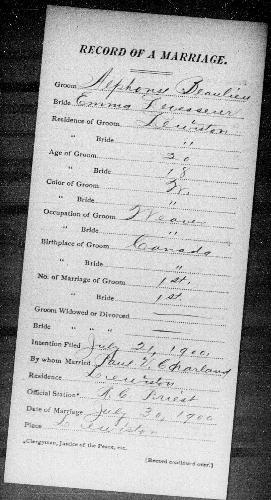 RECORD OF A MARRIAGE.
Groom Alphons Beaulieu
Bride Emma
Residence of Groom, Lewiston
" Bride "
Age of Groom 20
" Bride 18
Color of Groom W.
" Bride "
Occupation of Groom Weaver
" Bride "
Birthplace of Groom Canada
" Bride "
No. of Marriage of Groom 1st.
" Bride 1st.
Groom Widowed or Divorced
Bride " " "
Intention Filed July 21, 1900,
By whom Married Paul V. Charland
Residence Lewiston
Official Station* R. C. Priest
Date of Marriage July 30, 1900
Place Lewiston
*Clergyman, Justice of the Peace, etc.
[Record continued over.]